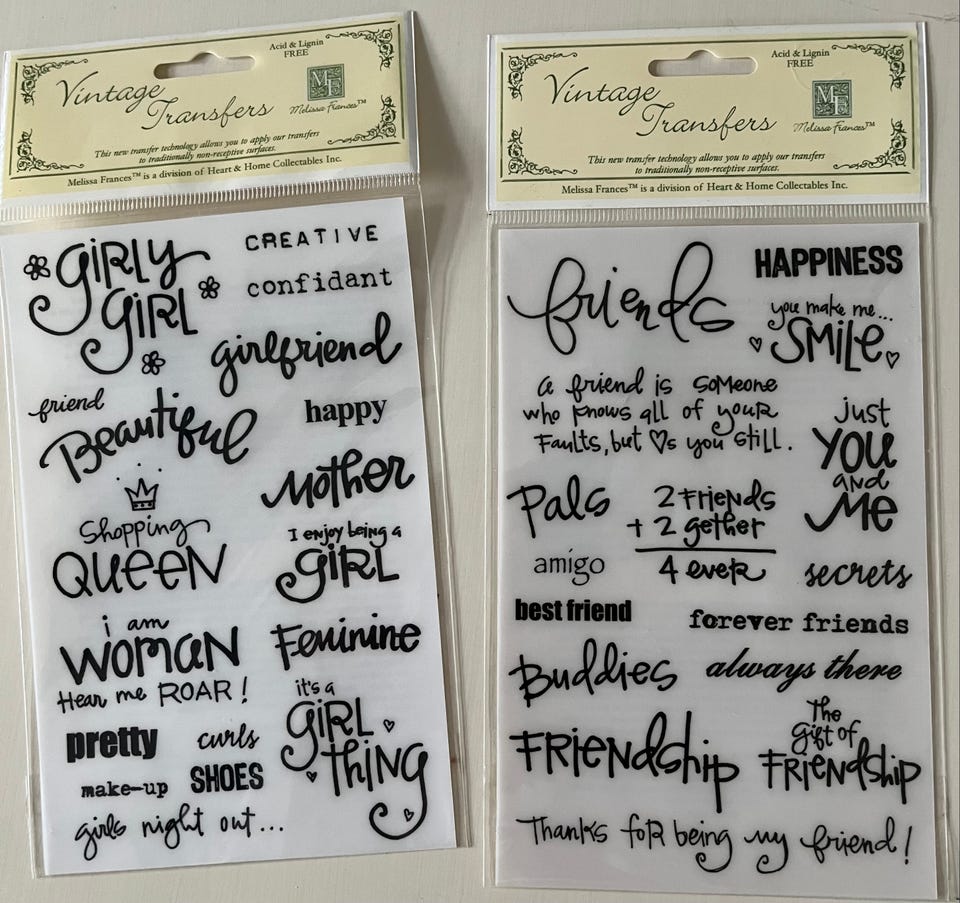 Acid & Lignin
FREE
Vintage
Transfers
MF
Melissa Frances™
This new transfer technology allows you to apply our transfers
to traditionally non-receptive surfaces.
Melissa Frances™ is a division of Heart & Home Collectables Inc.
GiRLY
GiRL
CREATIVE
confidant
girlfriend
friend
Beautiful
happy
Mother
Shopping
QUEEN
I enjoy being a
GiRL
i am
WOMAN
Hear me ROAR!
Feminine
it's a
GiRL
THiNG
pretty
curls
make-up
SHOES
girls night out...
Acid & Lignin
FREE
Vintage
Transfers
MF
Melissa Frances™
This new transfer technology allows you to apply our transfers
to traditionally non-receptive surfaces.
Melissa Frances™ is a division of Heart & Home Collectables Inc.
friends
HAPPINESS
you make me...
SMiLe
a friend is someone
who knows all of your
Faults, but ♡s you still.
just
YOU
and
Me
Pals
2 FRiends
+ 2 gether
4 eveR
amigo
secrets
best friend
forever friends
Buddies
always there
FRiendship
The
gift of
FRiendship
Thanks foR being my friend!